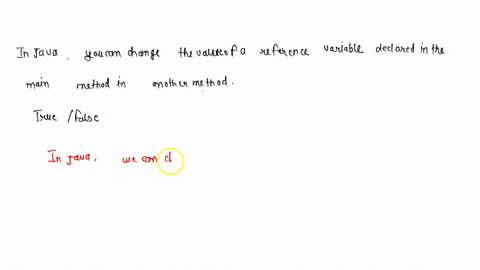 In Java, you can change the value of a reference variable declared in the
main method in another method.
True / False
In Java, we can d